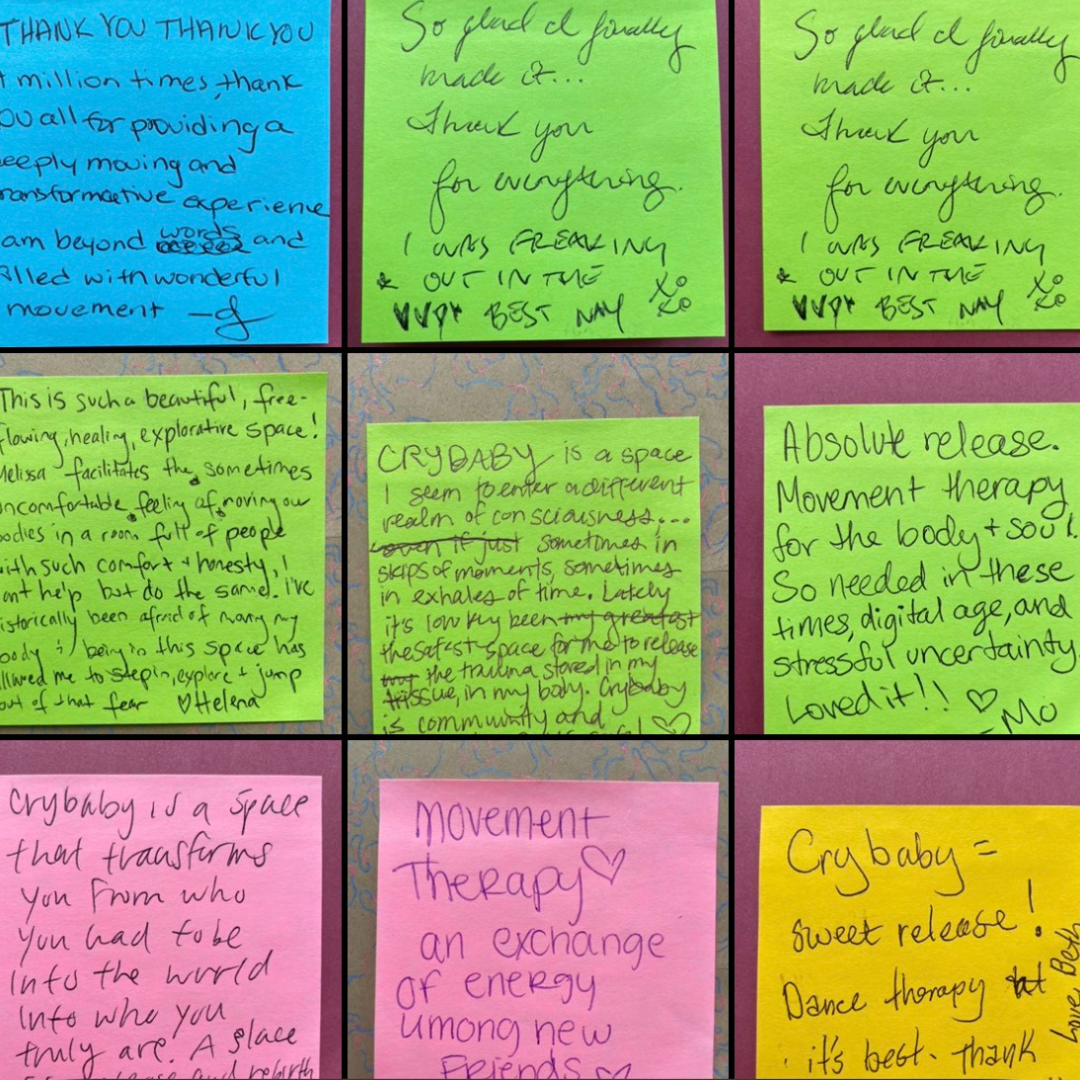 THANK YOU THANK YOU
million times, thank
all for providing a
moving and
experience
am beyond words and
with wonderful
movement -J
So glad I finally
made it...
Thank you
for everything.
I WAS FREAKING
& OUT IN THE
BEST WAY XOXO
So glad I finally
made it...
Thank you
for everything.
I WAS FREAKING
& OUT IN THE
BEST WAY XOXO
This is such a beautiful, free-
flowing, healing, explorative space!
Melissa facilitates the sometimes
uncomfortable feeling of moving our
bodies in a room full of people
with such comfort + honesty, I
can't help but do the same. I've
historically been afraid of moving my
body & being in this space has
allowed me to step in, explore + jump
out of that fear ♡Helena
CRYBABY is a space
I seem to enter a different
realm of consciousness...
even if just sometimes in
skips of moments, sometimes
in exhales of time. Lately
it's low key been my greatest
the safest space for me to release
my the trauma stored in my
tissue, in my body. Crybaby
is community and
Absolute release.
Movement therapy
for the body + soul.
So needed in these
times, digital age, and
stressful uncertainty.
Loved it!! ♡
-Mo
Crybaby is a space
that transforms
you from who
you had to be
into the world
into who you
truly are. A place
release and rebirth
Movement
Therapy♡
an exchange
of energy
among new
Friends ♡
Crybaby =
sweet release!
Dance therapy at
it's best. Thank
Love, Beth